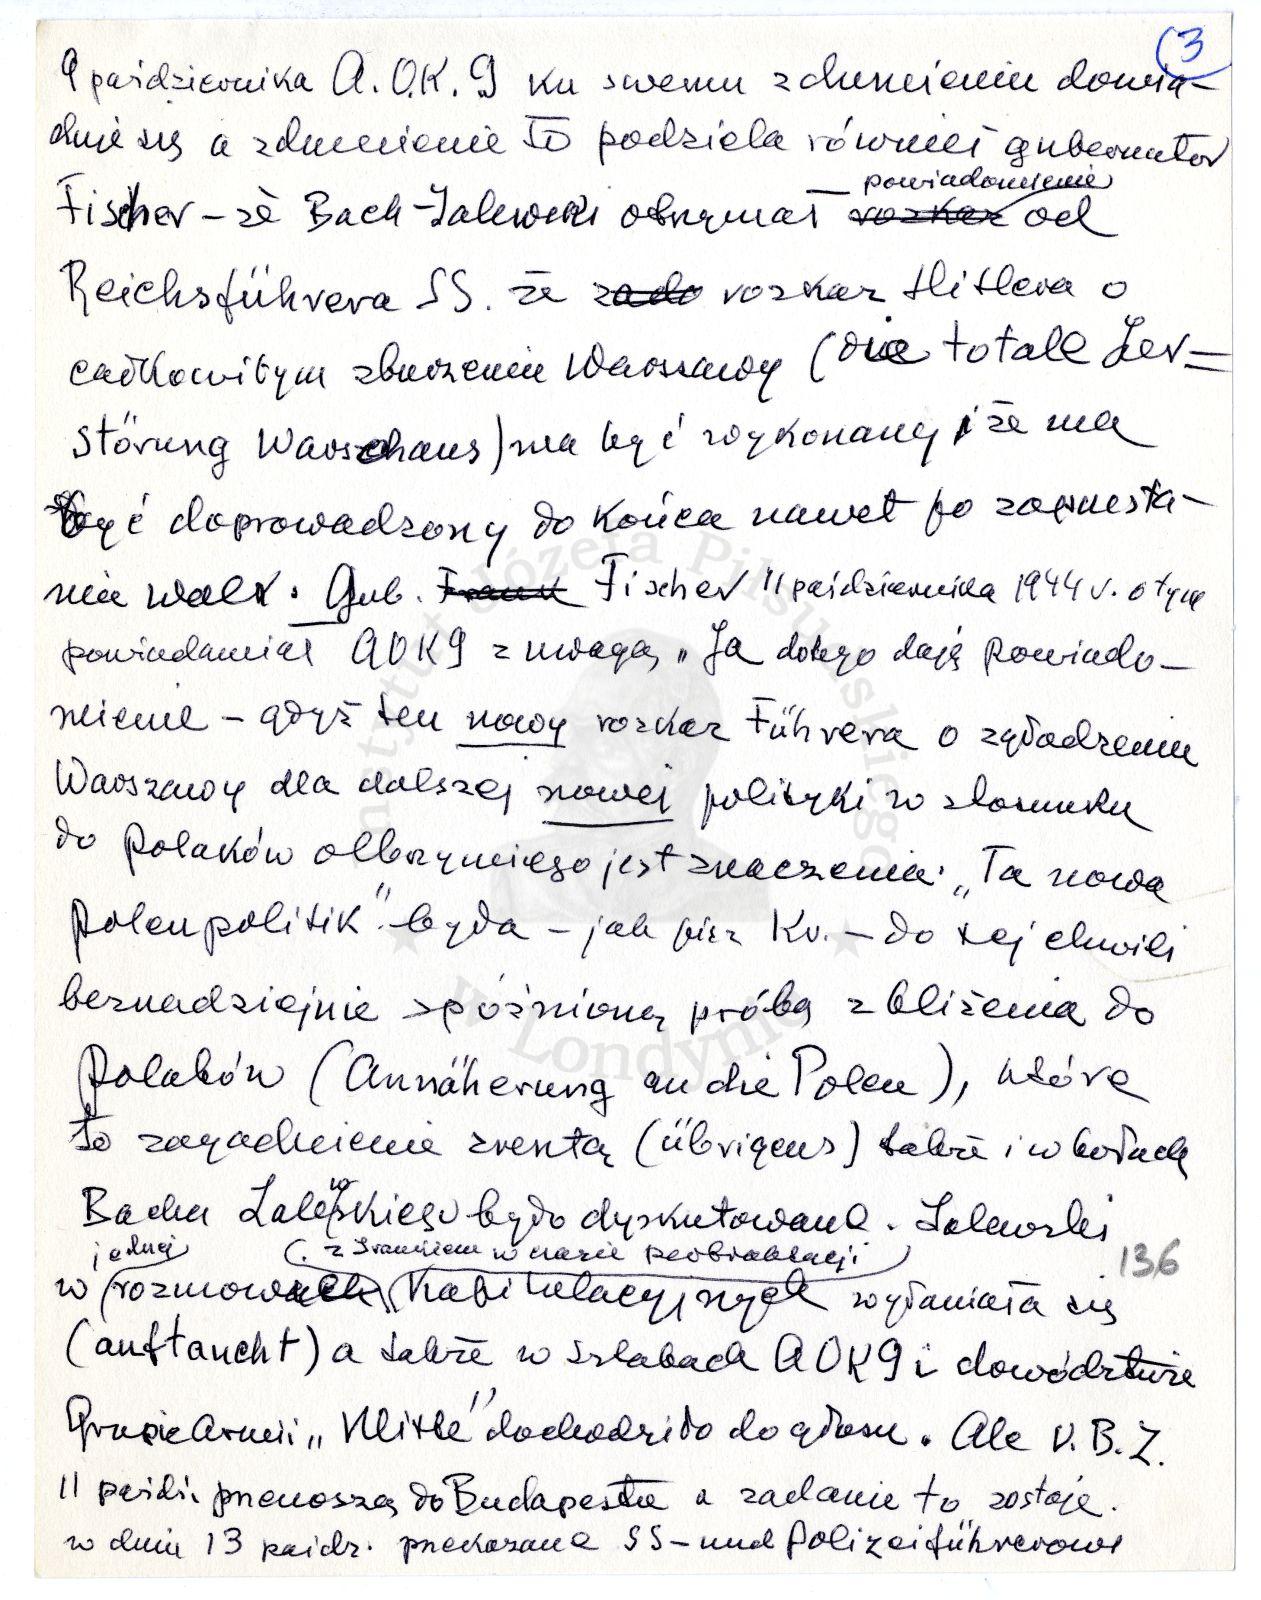 (3
9 października A.O.K. 9 ku swemu zdumieniu dowia-
duje się a zdumienie to podziela również gubernator
powiadomienie
Fischer – że Bach-Zalewski otrzymał rozkaz od
Reichsführera SS. że rozkaz Hitlera o
całkowitym zburzeniu Warszawy (die totale Zer=
störung Warschaus) ma być wykonany i że ma
być doprowadzony do końca nawet po zaprzesta-
niu walk. Gub. Frank Fischer 11 października 1944 r. o tym
powiadamiał AOK9 z uwagą „Ja dlatego daję powiado-
mienie – gdyż ten nowy rozkaz Führera o zgładzeniu
Warszawy dla dalszej nowej polityki w stosunku
do Polaków olbrzymiego jest znaczenia. „Ta nowa
Polenpolitik" była – jak pisze Kr. – do tej chwili
beznadziejnie spóźnioną próbą zbliżenia do
Polaków (Annäherung an die Polen), które
to zagadnienie zresztą (übrigens) także i w kołach
Bacha Zalewskiego było dyskutowane. Zalewski
jednej (z Irankiem w czasie pertraktacji)
w rozmowach kapitulacyjnych wyłaniała się
(auftaucht) a także w sztabach AOK9 i dowództwie
Grupie Armii „Mitte" dochodziło do głosu. Ale v. B. Z.
11 paźdz. przenoszą do Budapesztu a zadanie to zostaje
w dniu 13 paźdz. przekazane SS-und Polizeiführerowi
136
Instytut Józefa Piłsudskiego
w Londynie